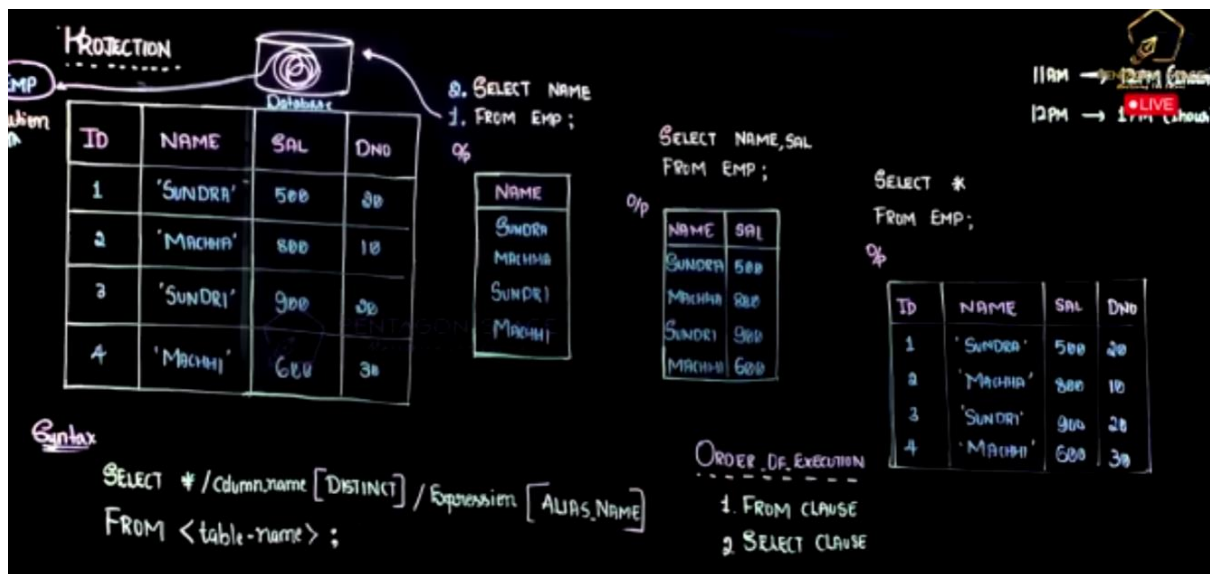 PROJECTION
EMP
Database
ID NAME SAL DNO
1 'SUNDRA' 500 20
2 'MACHHA' 800 10
3 'SUNDRI' 900 20
4 'MACHHI' 600 30
2. SELECT NAME
1. FROM EMP;
O/P
NAME
SUNDRA
MACHHA
SUNDRI
MACHHI
SELECT NAME, SAL
FROM EMP;
O/P
NAME SAL
SUNDRA 500
MACHHA 800
SUNDRI 900
MACHHI 600
11AM →
LIVE
12PM → 1PM
SELECT *
FROM EMP;
O/P
ID NAME SAL DNO
1 'SUNDRA' 500 20
2 'MACHHA' 800 10
3 'SUNDRI' 900 20
4 'MACHHI' 600 30
Syntax
SELECT * / Column_name [DISTINCT] / Expression [ALIAS_NAME]
FROM <table-name> ;
ORDER OF EXECUTION
1. FROM CLAUSE
2 SELECT CLAUSE